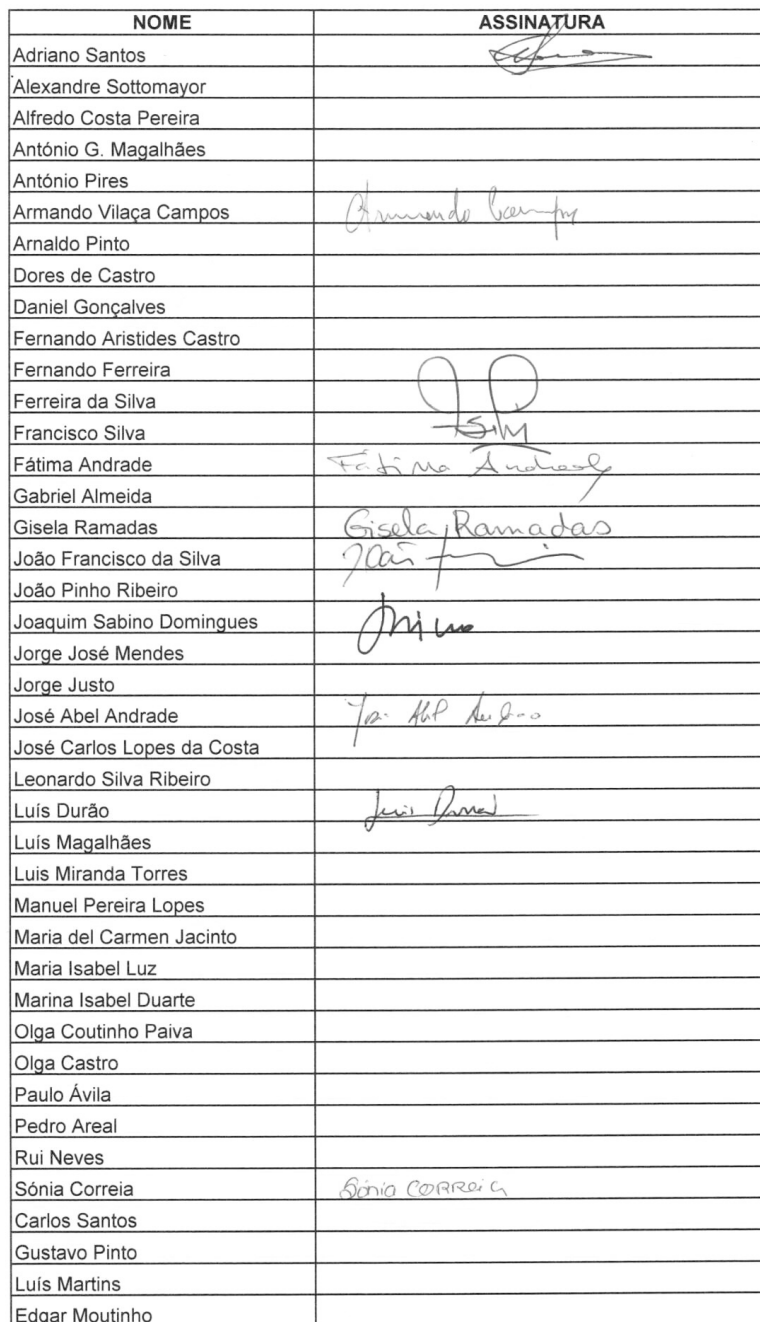 NOME ASSINATURA
Adriano Santos
Alexandre Sottomayor
Alfredo Costa Pereira
António G. Magalhães
António Pires
Armando Vilaça Campos Armando Campos
Arnaldo Pinto
Dores de Castro
Daniel Gonçalves
Fernando Aristides Castro
Fernando Ferreira
Ferreira da Silva
Francisco Silva
Fátima Andrade Fátima Andrade
Gabriel Almeida
Gisela Ramadas Gisela Ramadas
João Francisco da Silva João
João Pinho Ribeiro
Joaquim Sabino Domingues
Jorge José Mendes
Jorge Justo
José Abel Andrade José Abel Andrade
José Carlos Lopes da Costa
Leonardo Silva Ribeiro
Luís Durão Luís Durão
Luís Magalhães
Luis Miranda Torres
Manuel Pereira Lopes
Maria del Carmen Jacinto
Maria Isabel Luz
Marina Isabel Duarte
Olga Coutinho Paiva
Olga Castro
Paulo Ávila
Pedro Areal
Rui Neves
Sónia Correia Sónia CORREIA
Carlos Santos
Gustavo Pinto
Luís Martins
Edgar Moutinho